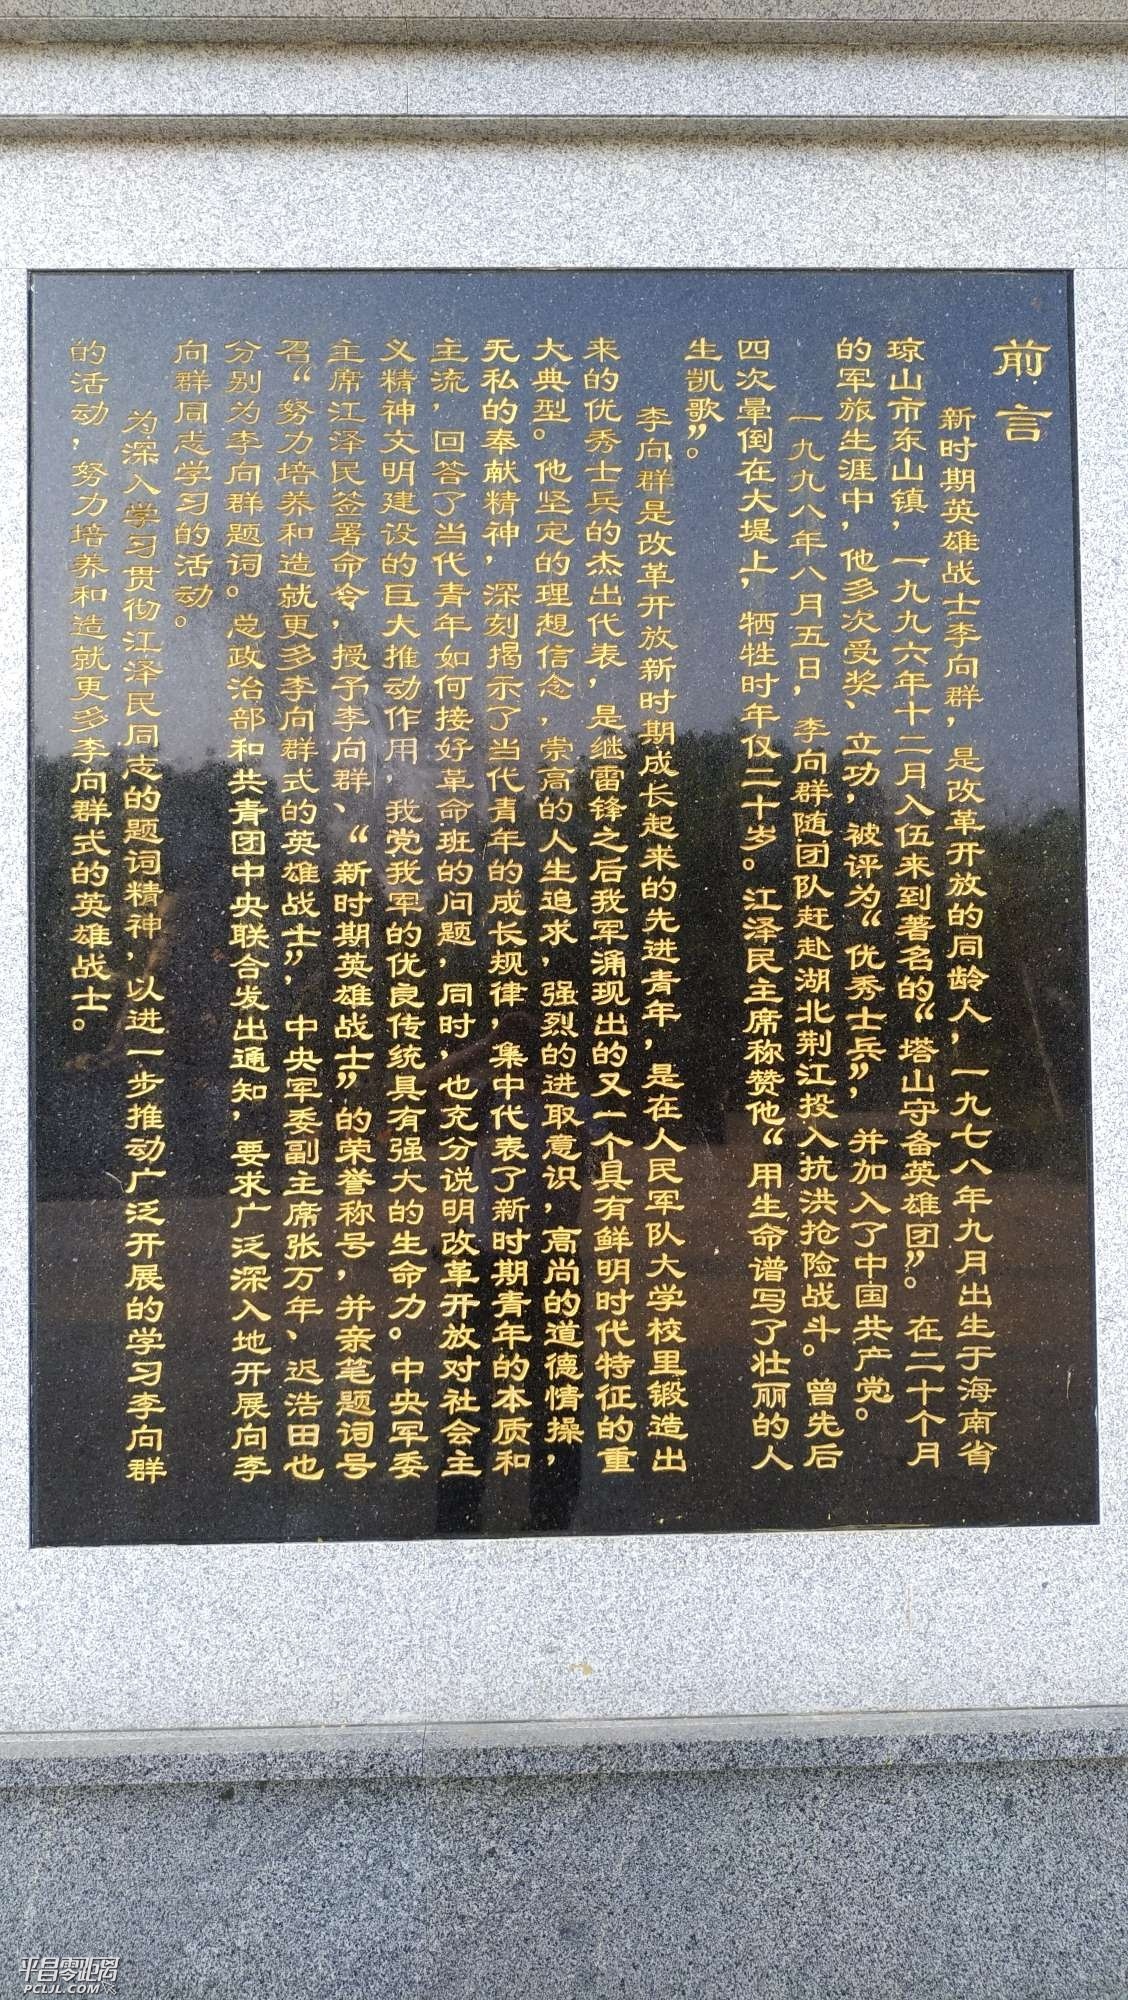 前言
新时期英雄战士李向群，是改革开放的同龄人，一九七八年九月出生于海南省
琼山市东山镇，一九九六年十二月入伍来到著名的“塔山守备英雄团”。在二十个月
的军旅生涯中，他多次受奖、立功，被评为“优秀士兵”，并加入了中国共产党。
一九九八年八月五日，李向群随团队赶赴湖北荆江投入抗洪抢险战斗。曾先后
四次晕倒在大堤上，牺牲时年仅二十岁。江泽民主席称赞他“用生命谱写了壮丽的人
生凯歌”。
李向群是改革开放新时期成长起来的先进青年，是在人民军队大学校里锻造出
来的优秀士兵的杰出代表，是继雷锋之后我军涌现出的又一个具有鲜明时代特征的重
大典型。他坚定的理想信念，崇高的人生追求，强烈的进取意识，高尚的道德情操，
无私的奉献精神，深刻揭示了当代青年的成长规律，集中代表了新时期青年的本质和
主流，回答了当代青年如何接好革命班的问题，同时，也充分说明改革开放对社会主
义精神文明建设的巨大推动作用，我党我军的优良传统具有强大的生命力。中央军委
主席江泽民签署命令，授予李向群、“新时期英雄战士”的荣誉称号，并亲笔题词号
召“努力培养和造就更多李向群式的英雄战士”，中央军委副主席张万年、迟浩田也
分别为李向群题词。总政治部和共青团中央联合发出通知，要求广泛深入地开展向李
向群同志学习的活动。
为深入学习贯彻江泽民同志的题词精神，以进一步推动广泛开展的学习李向群
的活动，努力培养和造就更多李向群式的英雄战士。
平昌零距离
PCLJL.COM